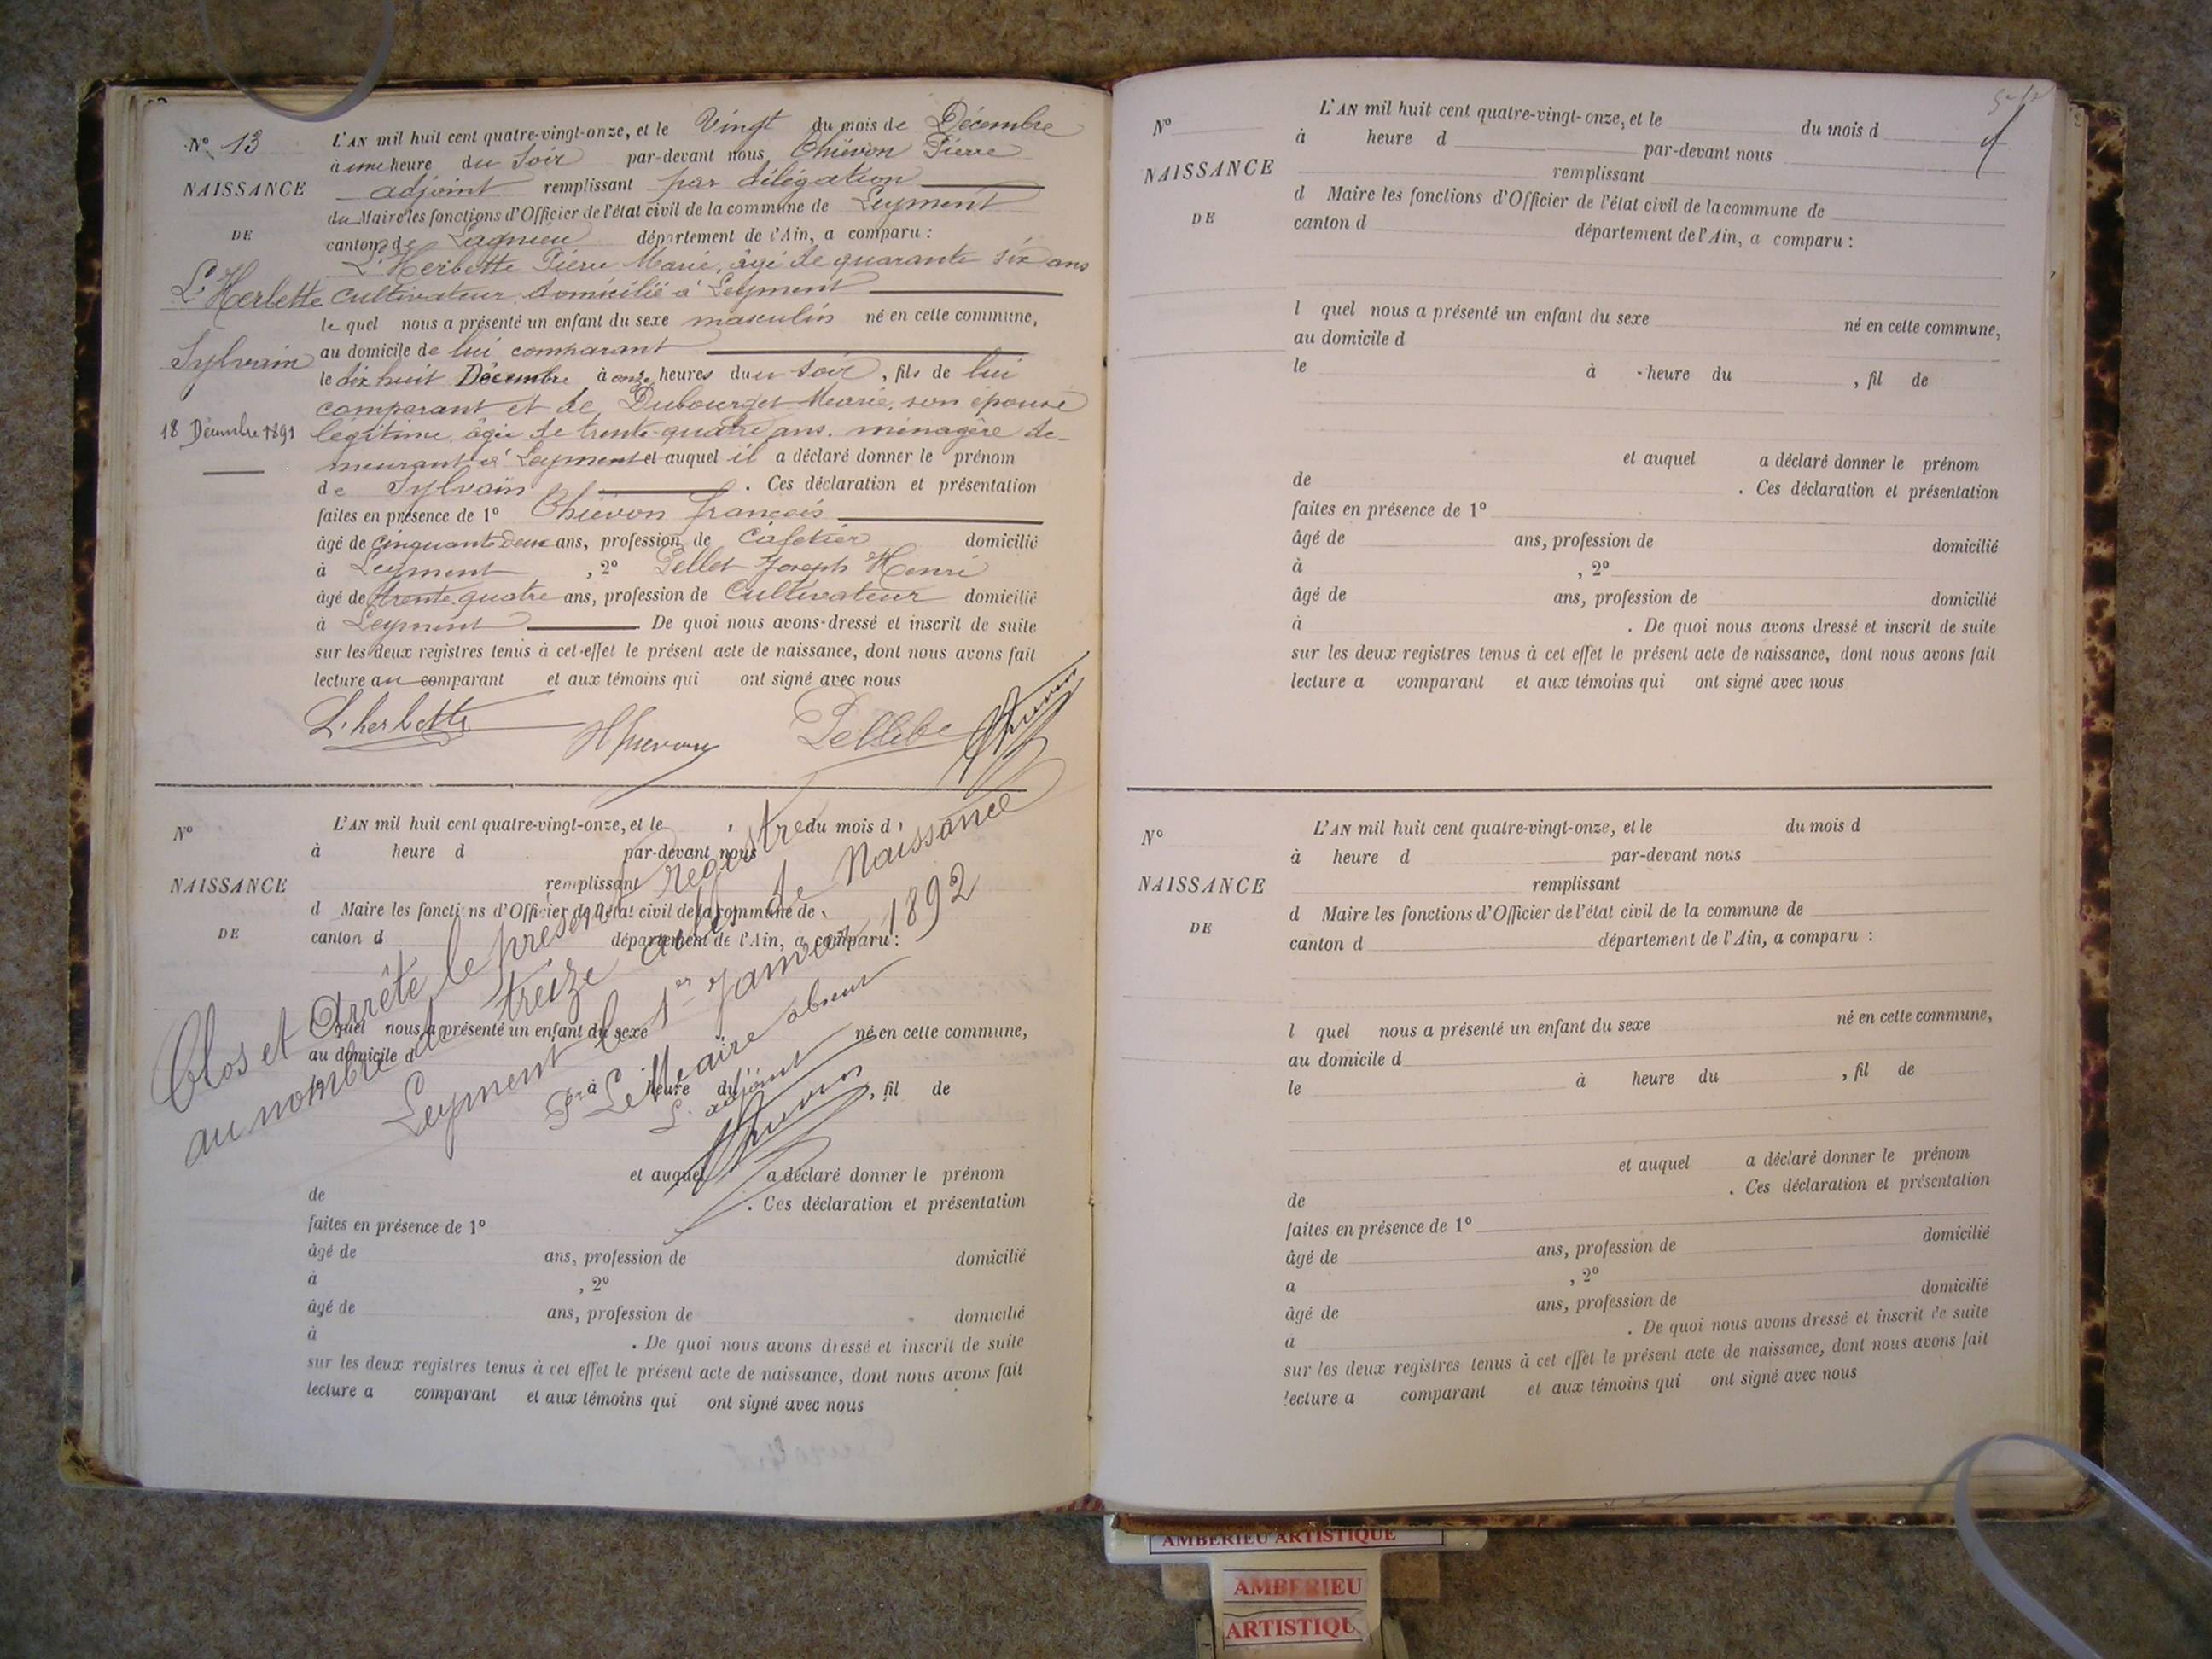 N° 13
NAISSANCE
DE
L'Herbette
Sylvain
18 Décembre 1891
L'AN mil huit cent quatre-vingt-onze, et le Vingt du mois de Décembre
à une heure du Soir par-devant nous Thiévon Pierre
adjoint remplissant par délégation
du Maire les fonctions d'Officier de l'état civil de la commune de Leyment
canton de Lagnieu département de l'Ain, a comparu :
L'Herbette Pierre Marie, âgé de quarante six ans
Cultivateur domicilié à Leyment
le quel nous a présenté un enfant du sexe masculin né en cette commune,
au domicile de lui comparant
le dix huit Décembre à onze heures du soir, fils de lui
comparant et de Dubourget Marie, son épouse
légitime, âgée de trente-quatre ans, ménagère de-
meurant à Leyment et auquel il a déclaré donner le prénom
de Sylvain . Ces déclaration et présentation
faites en présence de 1° Thiévon François
âgé de cinquante deux ans, profession de Cafetier domicilié
à Leyment , 2° Pellet Joseph Henri
âgé de trente quatre ans, profession de Cultivateur domicilié
à Leyment . De quoi nous avons dressé et inscrit de suite
sur les deux registres tenus à cet effet le présent acte de naissance, dont nous avons fait
lecture au comparant et aux témoins qui ont signé avec nous
L'herbette
N°
NAISSANCE
DE
L'AN mil huit cent quatre-vingt-onze, et le du mois d
à heure d par-devant nous
remplissant
d Maire les fonctions d'Officier de l'état civil de la commune de
canton d département de l'Ain, a comparu :
l quel nous a présenté un enfant du sexe né en cette commune,
au domicile d
à heure du , fil de
et auquel a déclaré donner le prénom
de . Ces déclaration et présentation
faites en présence de 1°
âgé de ans, profession de domicilié
à , 2°
âgé de ans, profession de domicilié
à . De quoi nous avons dressé et inscrit de suite
sur les deux registres tenus à cet effet le présent acte de naissance, dont nous avons fait
lecture a comparant et aux témoins qui ont signé avec nous
Clos et Arrêté le présent registre
au nombre de treize actes de Naissance
Leyment le 1er Janvier 1892
Pr Le Maire absent
L'adjoint
N°
NAISSANCE
DE
L'AN mil huit cent quatre-vingt-onze, et le du mois d
à heure d par-devant nous
remplissant
d Maire les fonctions d'Officier de l'état civil de la commune de
canton d département de l'Ain, a comparu :
l quel nous a présenté un enfant du sexe né en cette commune,
au domicile d
le à heure du , fil de
et auquel a déclaré donner le prénom
de . Ces déclaration et présentation
faites en présence de 1°
âgé de ans, profession de domicilié
à , 2°
âgé de ans, profession de domicilié
à . De quoi nous avons dressé et inscrit de suite
sur les deux registres tenus à cet effet le présent acte de naissance, dont nous avons fait
lecture a comparant et aux témoins qui ont signé avec nous
N°
NAISSANCE
DE
L'AN mil huit cent quatre-vingt-onze, et le du mois d
à heure d par-devant nous
remplissant
d Maire les fonctions d'Officier de l'état civil de la commune de
canton d département de l'Ain, a comparu :
l quel nous a présenté un enfant du sexe né en cette commune,
au domicile d
le à heure du , fil de
et auquel a déclaré donner le prénom
de . Ces déclaration et présentation
faites en présence de 1°
âgé de ans, profession de domicilié
a , 2°
âgé de ans, profession de domicilié
a . De quoi nous avons dressé et inscrit de suite
sur les deux registres tenus à cet effet le présent acte de naissance, dont nous avons fait
lecture a comparant et aux témoins qui ont signé avec nous
AMBERIEU ARTISTIQUE
AMBERIEU
ARTISTIQU